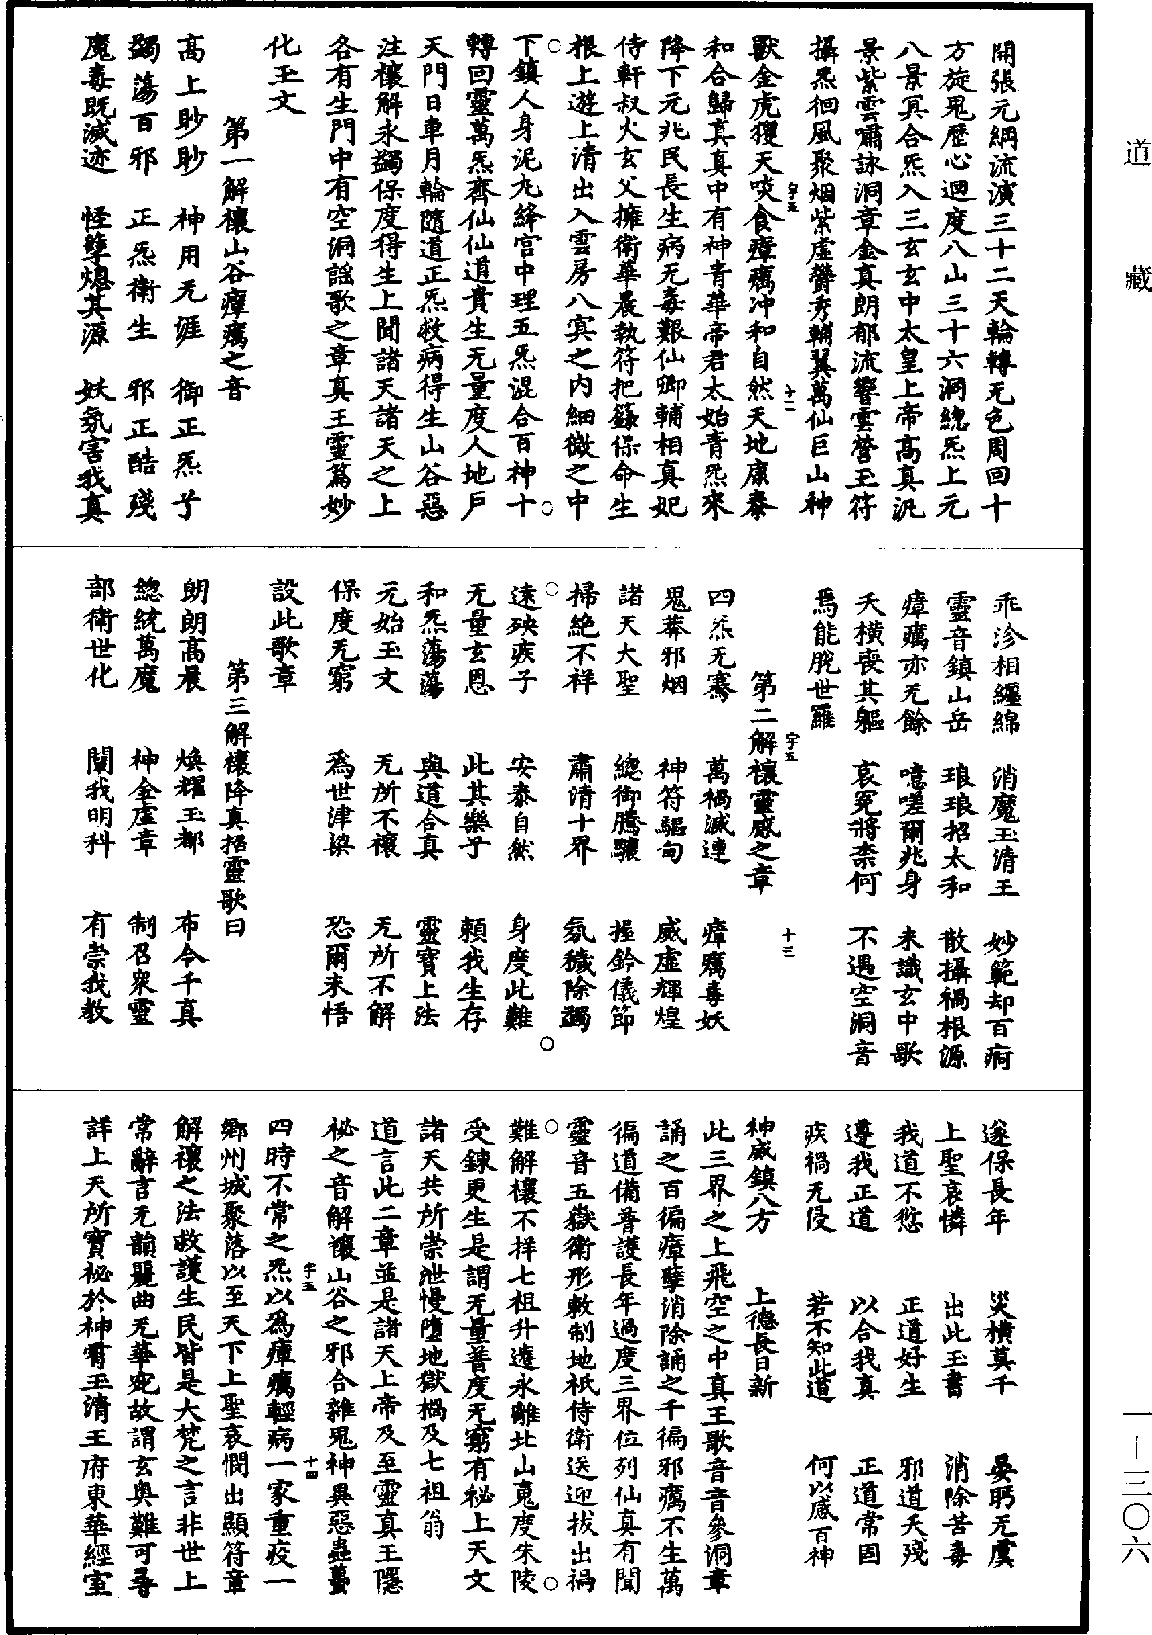 道藏
一—三〇六
開張元綱流演三十二天輪轉无色周回十
方旋鬼歷心迴度八山三十六洞總炁上元
八景冥合炁入三玄玄中太皇上帝高真汎
景紫雲嘯詠洞章金真朗郁流響雲營玉符
攝炁徊風聚烟紫虛欝秀輔翼萬仙巨山神
獸金虎玃天啖食瘴癘冲和自然天地康泰
和合歸真真中有神青華帝君太始青炁來
降下元兆民長生病无毒艱仙卿輔相真妃
侍軒叔火玄父擁衛華晨執符把籙保命生
根上遊上清出入雲房八冥之内細微之中
下鎮人身泥丸絳宮中理五炁混合百神十
轉回靈萬炁齊仙仙道貴生无量度人地戶
天門日車月輪隨道正炁救病得生山谷惡
注禳解永蠲保度得生上聞諸天諸天之上
各有生門中有空洞謡歌之章真王靈篇妙
化玉文
第一解禳山谷瘴癘之音
高上眇眇　神用无涯　御正炁兮
蠲蕩百邪　正炁衛生　邪正酷殘
魔毒既滅迹　怪孽熄其源　妖氛害我真
乖沴相纏綿　消魔玉清王　妙範却百痾
靈音鎮山岳　琅琅招太和　散攝禍根源
瘴癘亦无餘　噫嗟爾兆身　未識玄中歌
夭橫喪其軀　哀冤將柰何　不遇空洞音
焉能脫世羅
字五　十三
第二解禳靈感之章
四炁无騫　萬禍滅連　瘴癘毒妖
鬼莽邪烟　神符驅句　威虛輝煌
諸天大聖　總御騰驤　握鈴儀節
掃絶不祥　肅清十界　氛穢除蠲
遠殃疾子　安泰自然　身度此難
无量玄恩　此其樂乎　賴我生存
和炁蕩蕩　與道合真　靈寶上法
元始玉文　无所不禳　无所不解
保度无窮　為世津梁　恐爾未悟
設此歌章
第三解禳降真招靈歌曰
朗朗高晨　煥耀玉都　布令千真
總統萬魔　神金虛章　制召衆靈
部衛世化　闡我明科　有崇我教
遂保長年　災橫莫干　晏眄无虞
上聖哀憐　出此玉書　消除苦毒
我道不愆　正道好生　邪道夭殘
遵我正道　以合我真　正道常固
疾禍无侵　若不知此道　何以感百神
神威鎮八方　上德長日新
此三界之上飛空之中真王歌音音參洞章
誦之百徧瘴孽消除誦之千徧邪癘不生萬
徧道備普護長年過度三界位列仙真有聞
靈音五嶽衛形敕制地祇侍衛送迎拔出禍
難解禳不祥七祖升遷永離北山寃度朱陵
受鍊更生是謂无量普度无窮有祕上天文
諸天共所崇泄慢墮地獄禍及七祖翁
道言此二章並是諸天上帝及至靈真王隱
祕之音解禳山谷之邪合雜鬼神異惡蟲蠆
字五　十四
四時不常之炁以為瘴癘輕病一家重疫一
鄉州城聚落以至天下上聖哀憫出顯符章
解禳之法救護生民皆是大梵之言非世上
常辭言无韻麗曲无華宛故謂玄奥難可尋
詳上天所寶祕於神霄玉清王府東華經室